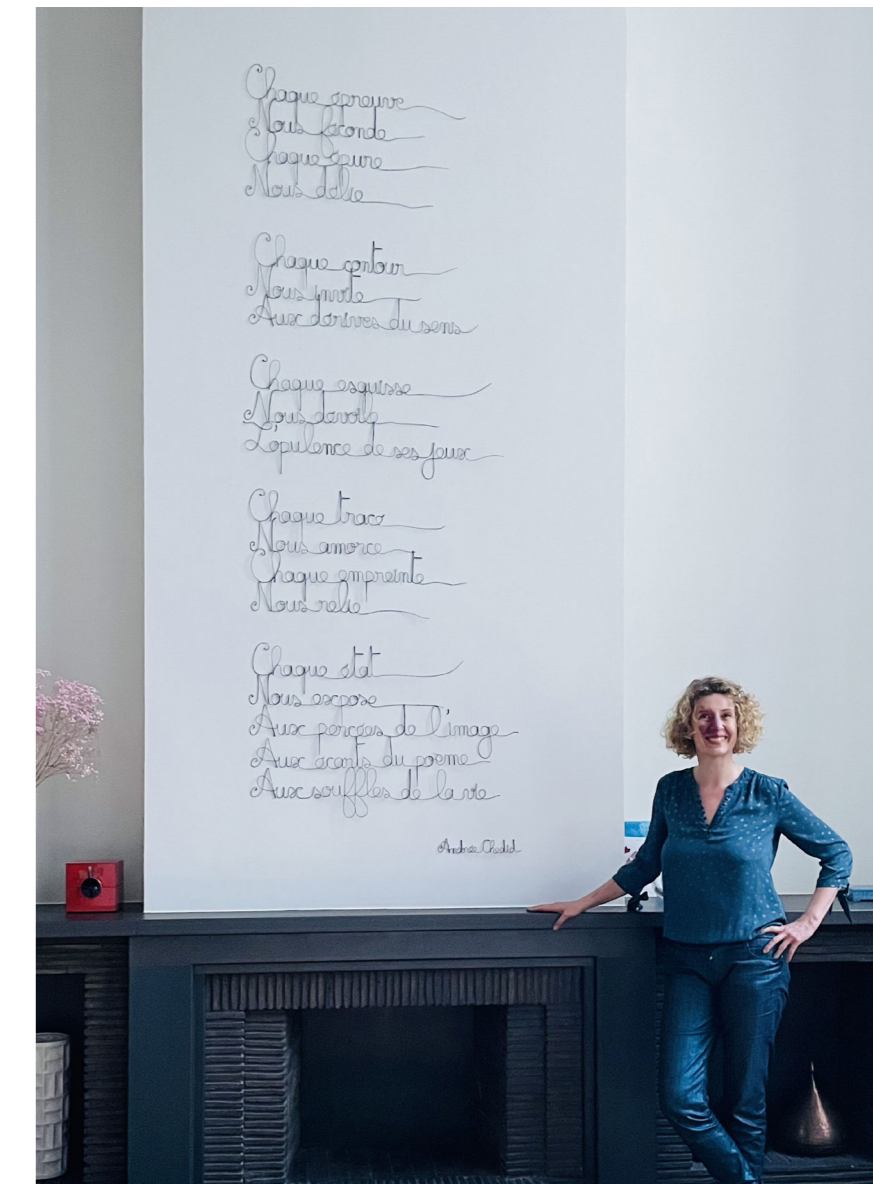 Chaque épreuve
Nous féconde
Chaque épure
Nous délie
Chaque contour
Nous invite
Aux dérives du sens
Chaque esquisse
Nous dévoile
L'opulence de ses jeux
Chaque trace
Nous amorce
Chaque empreinte
Nous relie
Chaque état
Nous expose
Aux percées de l'image
Aux écarts du poème
Aux souffles de la vie
Andrée Chedid